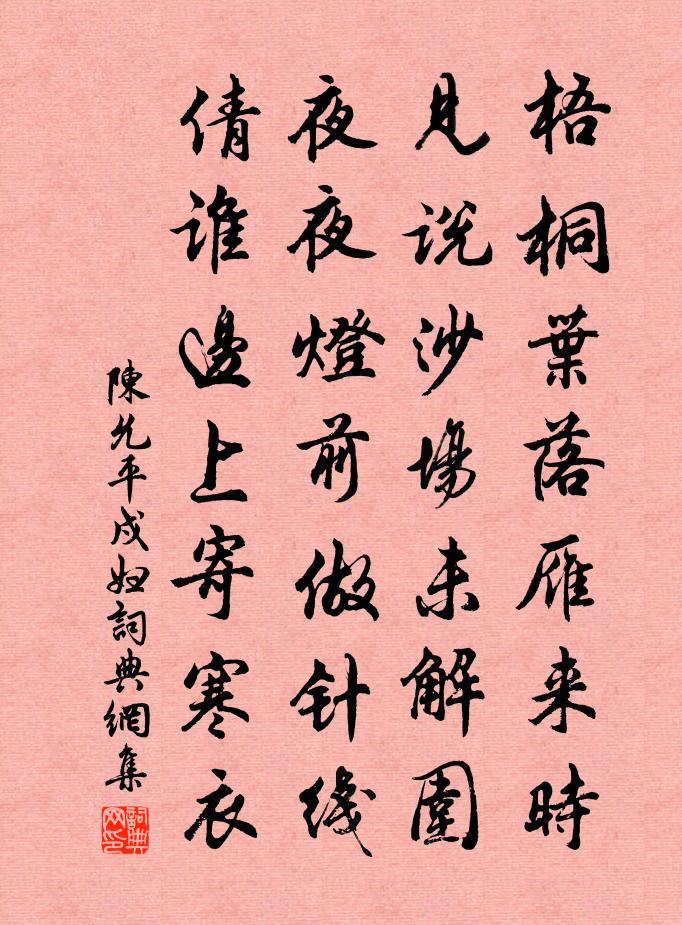 梧桐葉落雁来時
見説沙場未解圍
夜夜燈前做针綫
倩誰邊上寄寒衣
陳允平戍妇詞典網集
詞典网印